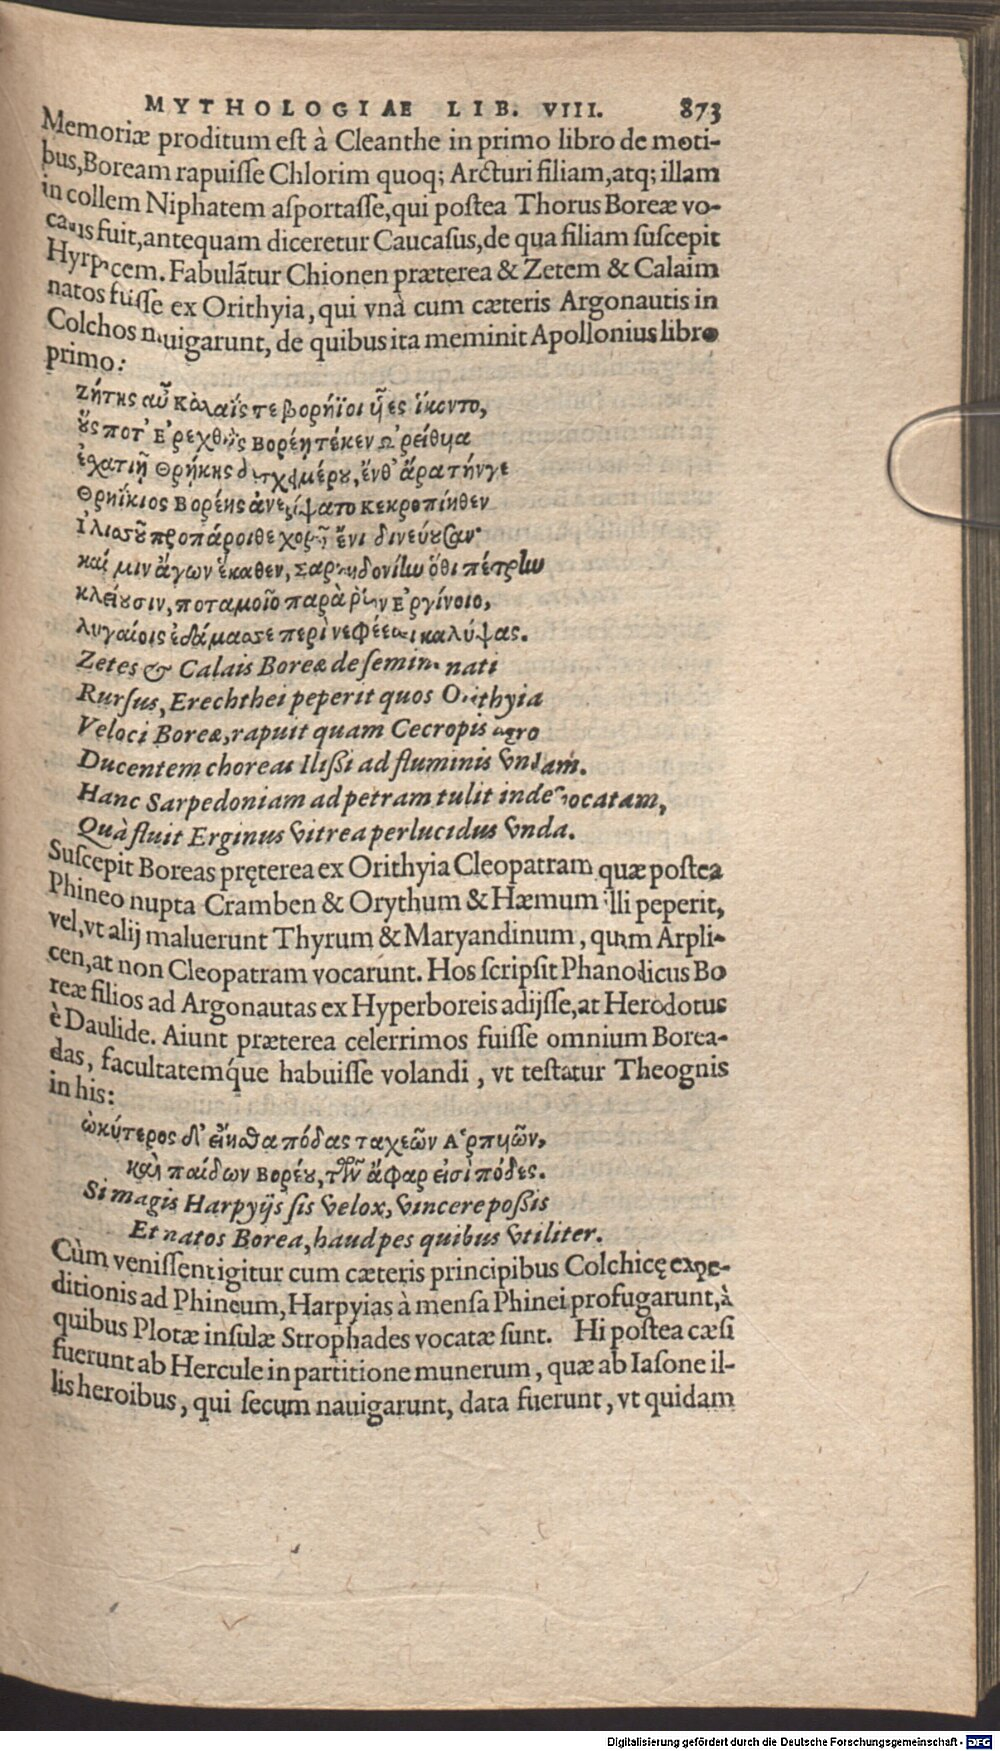 MYTHOLOGIAE LIB. VIII. 873
Memoriæ proditum est à Cleanthe in primo libro de moti-
bus, Boream rapuisse Chlorim quoq; Arcturi filiam, atq; illam
in collem Niphatem asportasse, qui postea Thorus Boreæ vo-
fuit, antequam diceretur Caucasus, de qua filiam suscepit
Hyrpacem. Fabulãtur Chionen præterea & Zetem & Calaim
natos fuisse ex Orithyia, qui vnà cum cæteris Argonautis in
Colchos nauigarunt, de quibus ita meminit Apollonius libro
primo:
Ζήτης αὖ Κάλαΐς τε βορήϊοι υἷες ἵκοντο,
οὕς ποτ' Ἐρεχθηῒς Βορέῃ τέκεν Ὠρείθυια
ἐχατιῇ Θρῄκης δυσχειμέρου, ἔνθ' ἄρα τήνγε
Θρηΐκιος Βορέης ἀνερέψατο Κεκροπίηθεν
Ἰλισσοῦ προπάροιθε χορῷ ἔνι δινεύουσαν·
καί μιν ἄγων ἕκαθεν, Σαρπηδονίην ὅθι πέτρην
κλείουσιν, ποταμοῖο παρὰ ῥόον Ἐργίνοιο,
λυγαίοις ἐδάμασσε περὶ νεφέεσσι καλύψας.
Zetes & Calais Boreæ de semine nati
Rursus, Erechthei peperit quos Orithyia
Veloci Boreæ, rapuit quam Cecropis agro
Ducentem choreas Ilissi ad fluminis vndam.
Hanc Sarpedoniam ad petram tulit inde vocatam,
Quà fluit Erginus vitrea perlucidus vnda.
Suscepit Boreas pręterea ex Orithyia Cleopatram quæ postea
Phineo nupta Cramben & Orythum & Hæmum illi peperit,
vel, vt alij maluerunt Thyrum & Maryandinum, quam Arpli-
cen, at non Cleopatram vocarunt. Hos scripsit Phanodicus Bo
reæ filios ad Argonautas ex Hyperboreis adijsse, at Herodotus
è Daulide. Aiunt præterea celerrimos fuisse omnium Borea-
das, facultatemq́ue habuisse volandi, vt testatur Theognis
in his:
ὠκύτερος δ' εἴησθα πόδας ταχεῶν Ἁρπυιῶν,
καὶ παίδων Βορέου, τῶν ἄφαρ εἰσὶ πόδες.
Si magis Harpyijs sis velox, vincere possis
Et natos Borea, haud pes quibus vtiliter.
Cùm venissent igitur cum cæteris principibus Colchicę expe-
ditionis ad Phineum, Harpyias à mensa Phinei profugarunt, à
quibus Plotæ insulæ Strophades vocatæ sunt. Hi postea cæsi
fuerunt ab Hercule in partitione munerum, quæ ab Iasone il-
lis heroibus, qui secum nauigarunt, data fuerunt, vt quidam
Digitalisierung gefördert durch die Deutsche Forschungsgemeinschaft - DFG